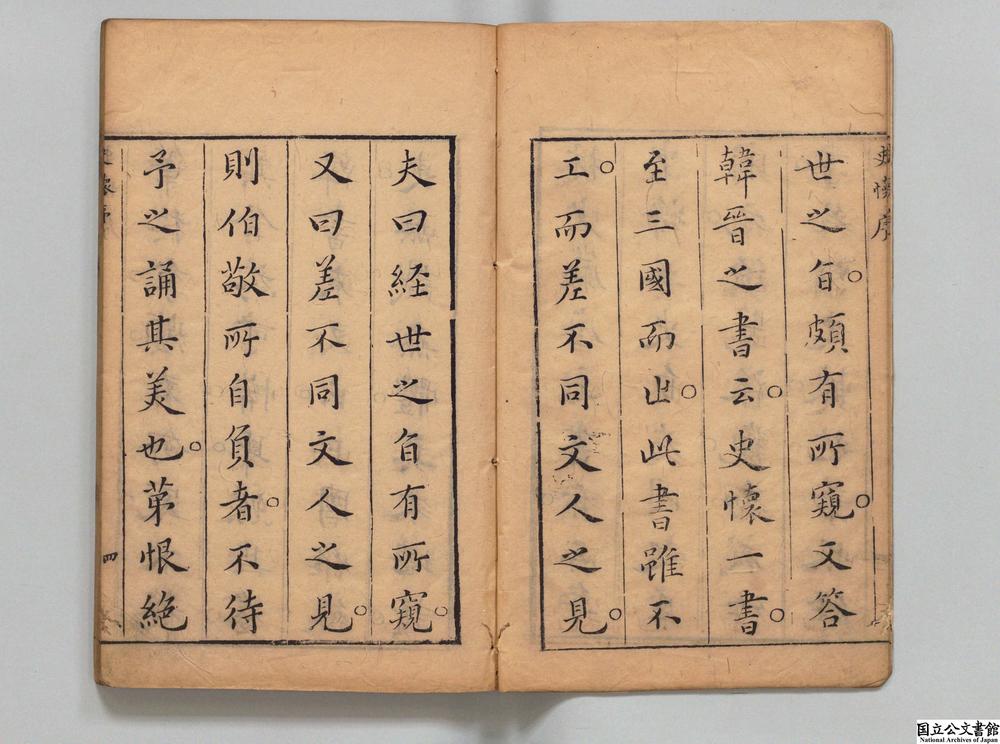 史懷序
世之旨。頗有所窺。又答
韓晉之書云。史懷一書。
至三國而止。此書雖不
工。而差不同文人之見。
夫曰経世之旨有所窺。
又曰差不同文人之見。
則伯敬所自負者。不待
予之誦其美也。苐恨絶
史懷序
四
国立公文書館
National Archives of Japan